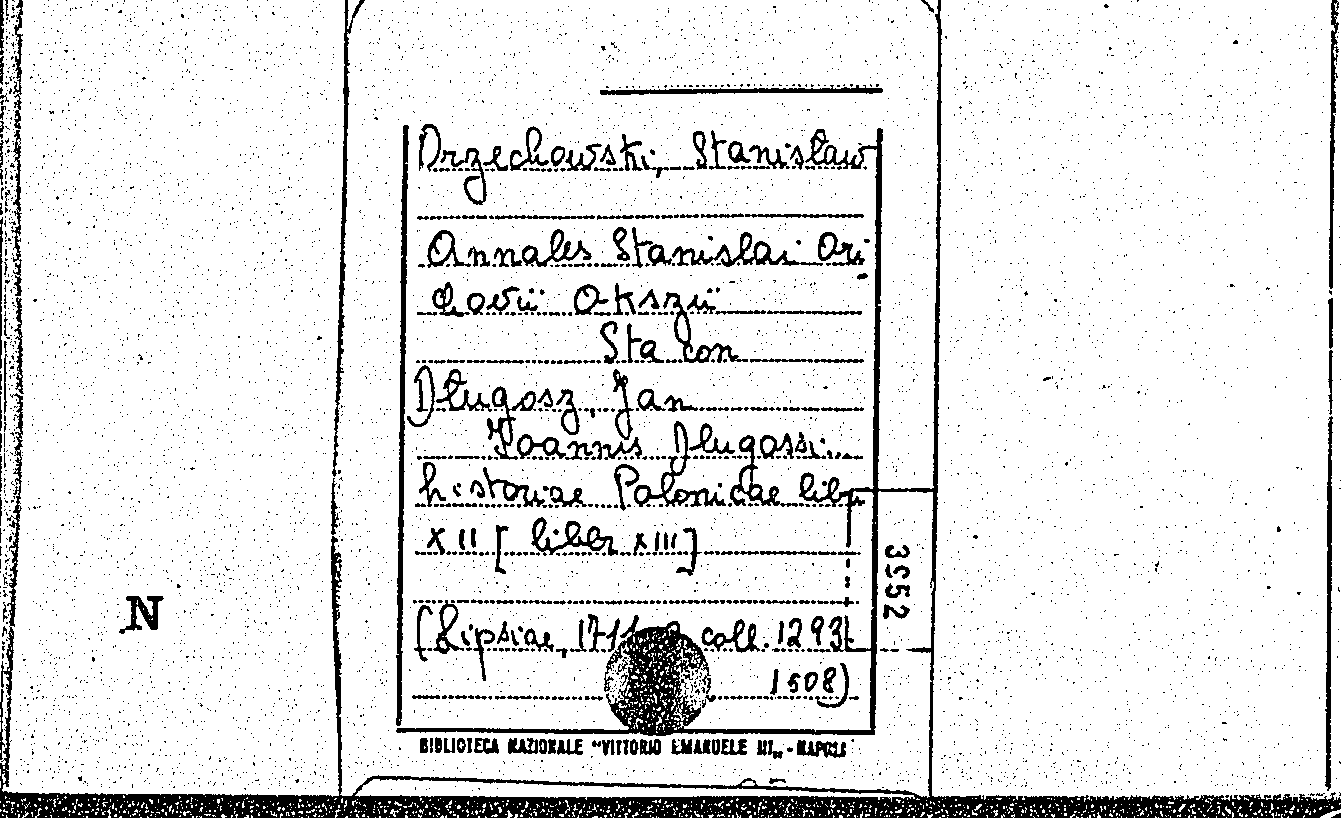 Orzechowski, Stanisław
Annales Stanislai Ori
chovii Okszii
Sta con
Długosz, Jan
Ioannis Dlugossi...
historiae Polonicae libri
XII [liber XIII]
(Lipsiae, coll. 1293-
1508)
3952
N
BIBLIOTECA NAZIONALE "VITTORIO EMANUELE III„ - NAPOLI